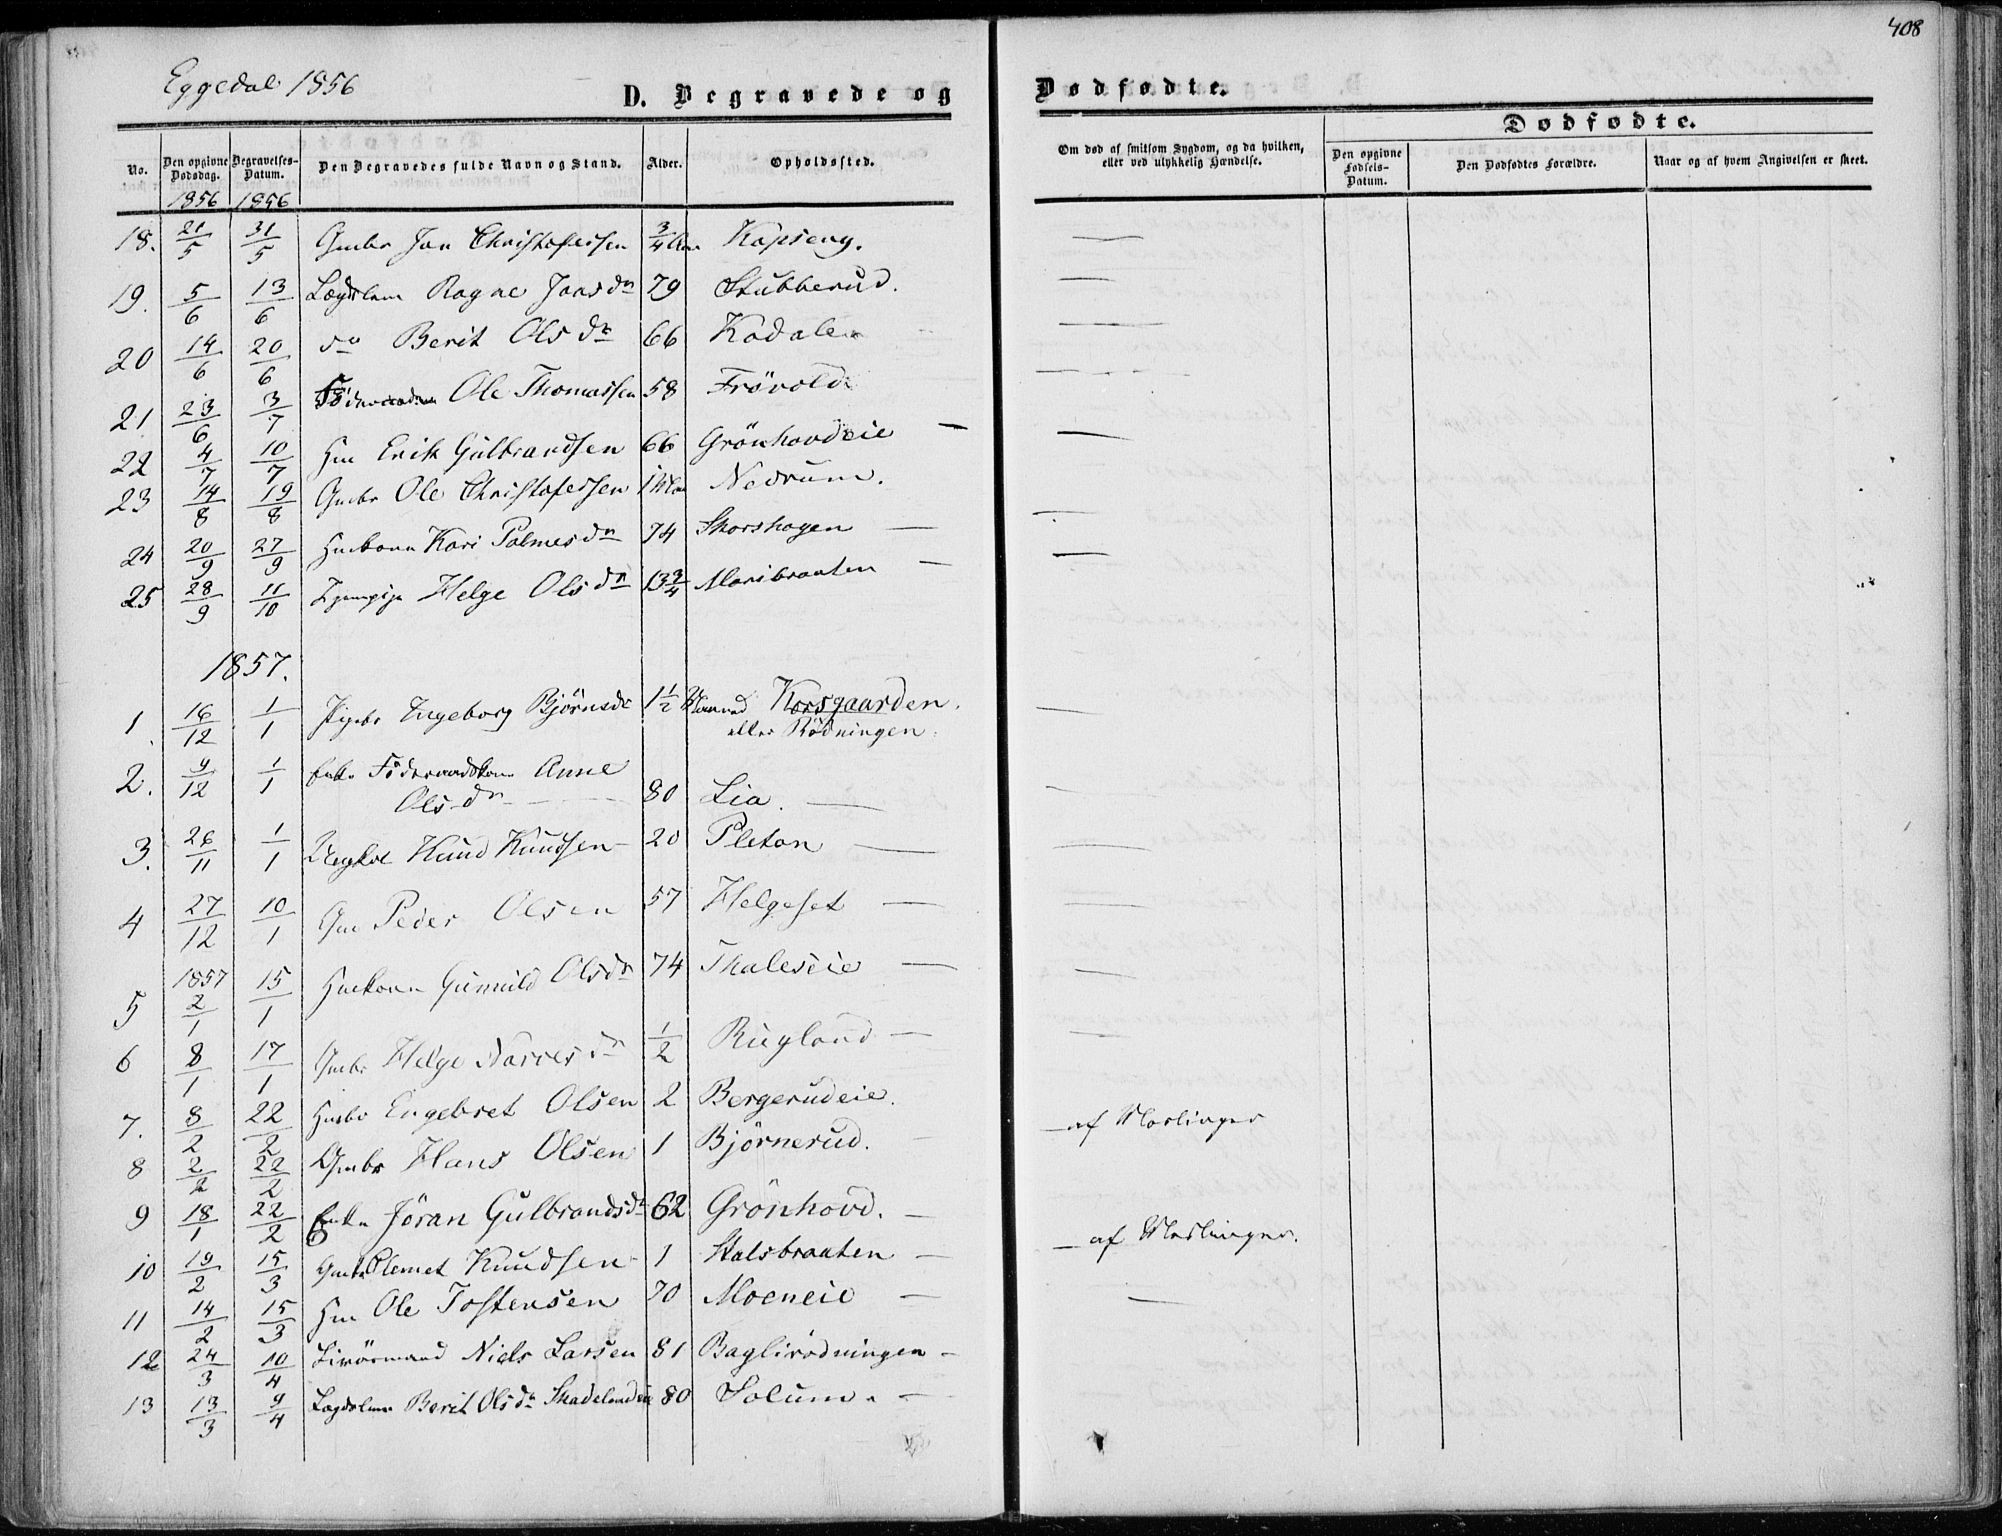 408
Eggedal 1856
D. Begravede og Dødfødte.
Dødfødte.
No. Den opgivne Dødsdag. Begravelses-Datum. Den Begravedes fulde Navn og Stand. Alder. Opholdssted. Om død af smitsom Sygdom, og da hvilken, eller ved ulykkelig Hændelse. Den opgivne Fødsels-Datum. Den Dødfødtes Forældre. Naar og af hvem Angivelsen er skeet.
1856 1856
18. 21/5 31/5 Gmbr Jon Christofersen 3/4 Kopseng.
19. 5/6 13/6 Lægdslem Ragne Jons dr 79 Stubberud.
20 14/6 20/6 do Berit Ols dr 66 Kodalen
21 23/6 3/7 Ole Thomassen 58 Frövold
22 4/7 10/7 Hm Erik Gulbrandsen 66 Grönhovdeie —
23 14/8 19/8 Gmbr Ole Christofersen 1 Nedrum.
24 20/9 27/9 Hmkone Kari Palmesdr 74 Skorshagen —
25 28/9 11/10 Helge Ols dr 13 3/4 Moribraaten —
1857.
1. 16/12 1/1 Pigebr Ingeborg Björnsdr 1 1/2 Korsgaarden.
eller Rödningen.
2. 9/12 1/1 Enke Föderaadskone Anne
Olsdr 80 Lia. —
3. 26/11 1/1 Ungkl Knud Knudsen 20 Pleton —
4 27/12 10/1 Gm Peder Olsen 57 Helgeset —
5 1857 2/1 15/1 Hmkone Gunnild Olsdr 74 Thaleseie —
6 8/1 17/1 Gmbr Helge Narves dr 1/2 Rugland —
7. 8/2 22/2 Hmbr Engebret Olsen 2 Bergerudeie. — af Meslinger
8 2/2 22/2 Gmbr Hans Olsen 1 Björnerud. —
9 18/1 22/2 Enke Jöran Gulbrandsdr 62 Grönhovd. —
10 19/2 15/3 Gmbr Clemet Knudsen 1 Stalsbraaten — — af Meslinger.
11 14/2 15/3 Hm Ole Tostensen 70 Moeneie — —
12 24/3 10/4 Livörmand Niels Larsen 81 Baglirödningen —
13 13/3 9/4 Lægdslem Berit Ols dr Skadelandeie 80 Solum. —